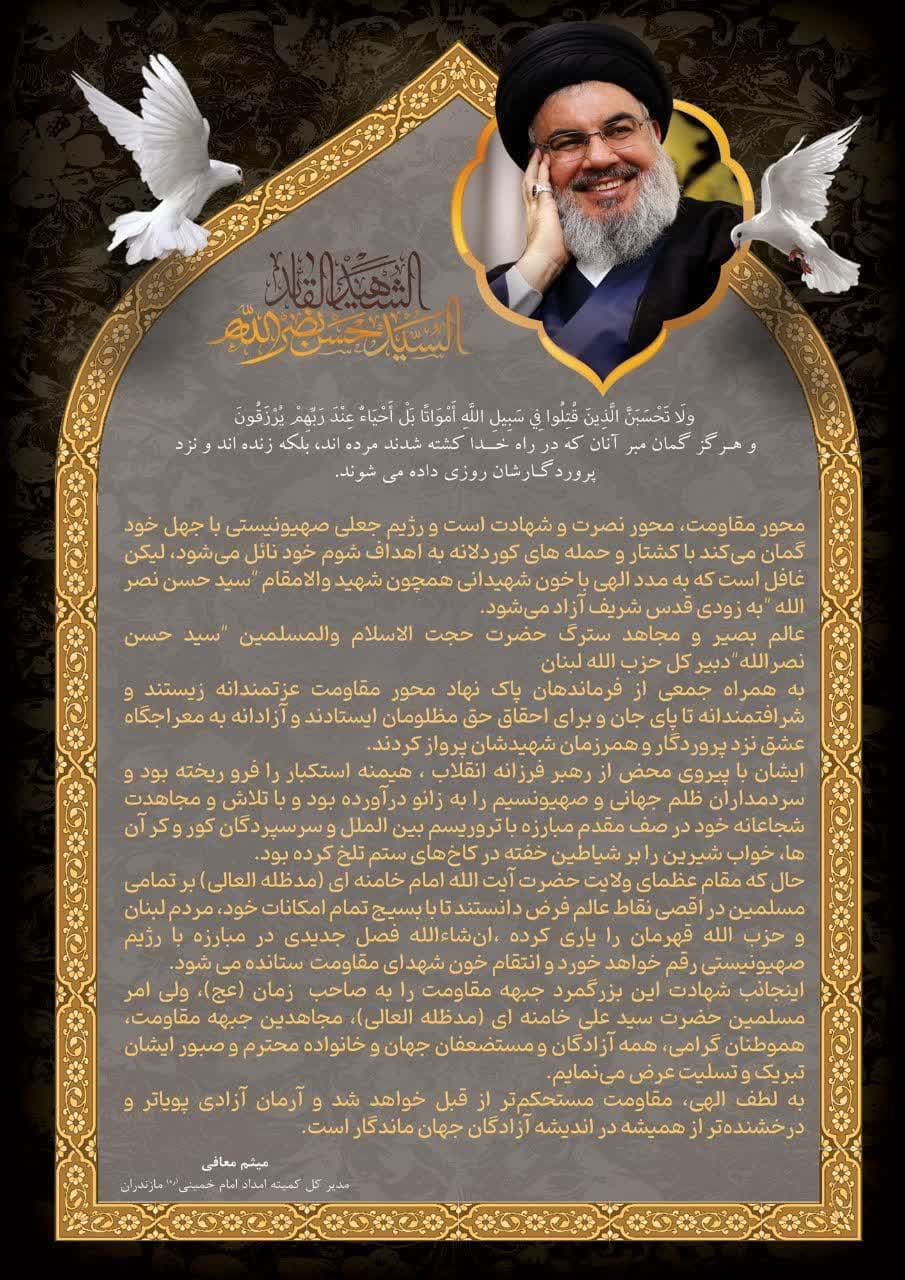 الشهید القائد
السید حسن نصر الله
ولَا تَحْسَبَنَّ الَّذِينَ قُتِلُوا فِي سَبِيلِ اللَّهِ أَمْوَاتًا بَلْ أَحْيَاءٌ عِنْدَ رَبِّهِمْ يُرْزَقُونَ
و هرگز گمان مبر آنان که در راه خدا کشته شدند مرده اند، بلکه زنده اند و نزد
پروردگارشان روزی داده می شوند.
محور مقاومت، محور نصرت و شهادت است و رژیم جعلی صهیونیستی با جهل خود
گمان می‌کند با کشتار و حمله های کوردلانه به اهداف شوم خود نائل می‌شود، لیکن
غافل است که به مدد الهی با خون شهیدانی همچون شهید والامقام "سید حسن نصر
الله "به زودی قدس شریف آزاد می‌شود.
عالم بصیر و مجاهد سترگ حضرت حجت الاسلام والمسلمین "سید حسن
نصرالله"دبیر کل حزب الله لبنان
به همراه جمعی از فرماندهان پاک نهاد محور مقاومت عزتمندانه زیستند و
شرافتمندانه تا پای جان و برای احقاق حق مظلومان ایستادند و آزادانه به معراجگاه
عشق نزد پروردگار و همرزمان شهیدشان پرواز کردند.
ایشان با پیروی محض از رهبر فرزانه انقلاب ، هیمنه استکبار را فرو ریخته بود و
سردمداران ظلم جهانی و صهیونسیم را به زانو درآورده بود و با تلاش و مجاهدت
شجاعانه خود در صف مقدم مبارزه با تروریسم بین الملل و سرسپردگان کور و کر آن
ها، خواب شیرین را بر شیاطین خفته در کاخ‌های ستم تلخ کرده بود.
حال که مقام عظمای ولایت حضرت آیت الله امام خامنه ای (مدظله العالی) بر تمامی
مسلمین در اقصی نقاط عالم فرض دانستند تا با بسیج تمام امکانات خود، مردم لبنان
و حزب الله قهرمان را یاری کرده ،ان‌شاءالله فصل جدیدی در مبارزه با رژیم
صهیونیستی رقم خواهد خورد و انتقام خون شهدای مقاومت ستانده می شود.
اینجانب شهادت این بزرگمرد جبهه مقاومت را به صاحب زمان (عج)، ولی امر
مسلمین حضرت سید علی خامنه ای (مدظله العالی)، مجاهدین جبهه مقاومت،
هموطنان گرامی، همه آزادگان و مستضعفان جهان و خانواده محترم و صبور ایشان
تبریک و تسلیت عرض می‌نمایم.
به لطف الهی، مقاومت مستحکم‌تر از قبل خواهد شد و آرمان آزادی پویاتر و
درخشنده‌تر از همیشه در اندیشه آزادگان جهان ماندگار است.
میثم معافی
مدیر کل کمیته امداد امام خمینی(ره) مازندران